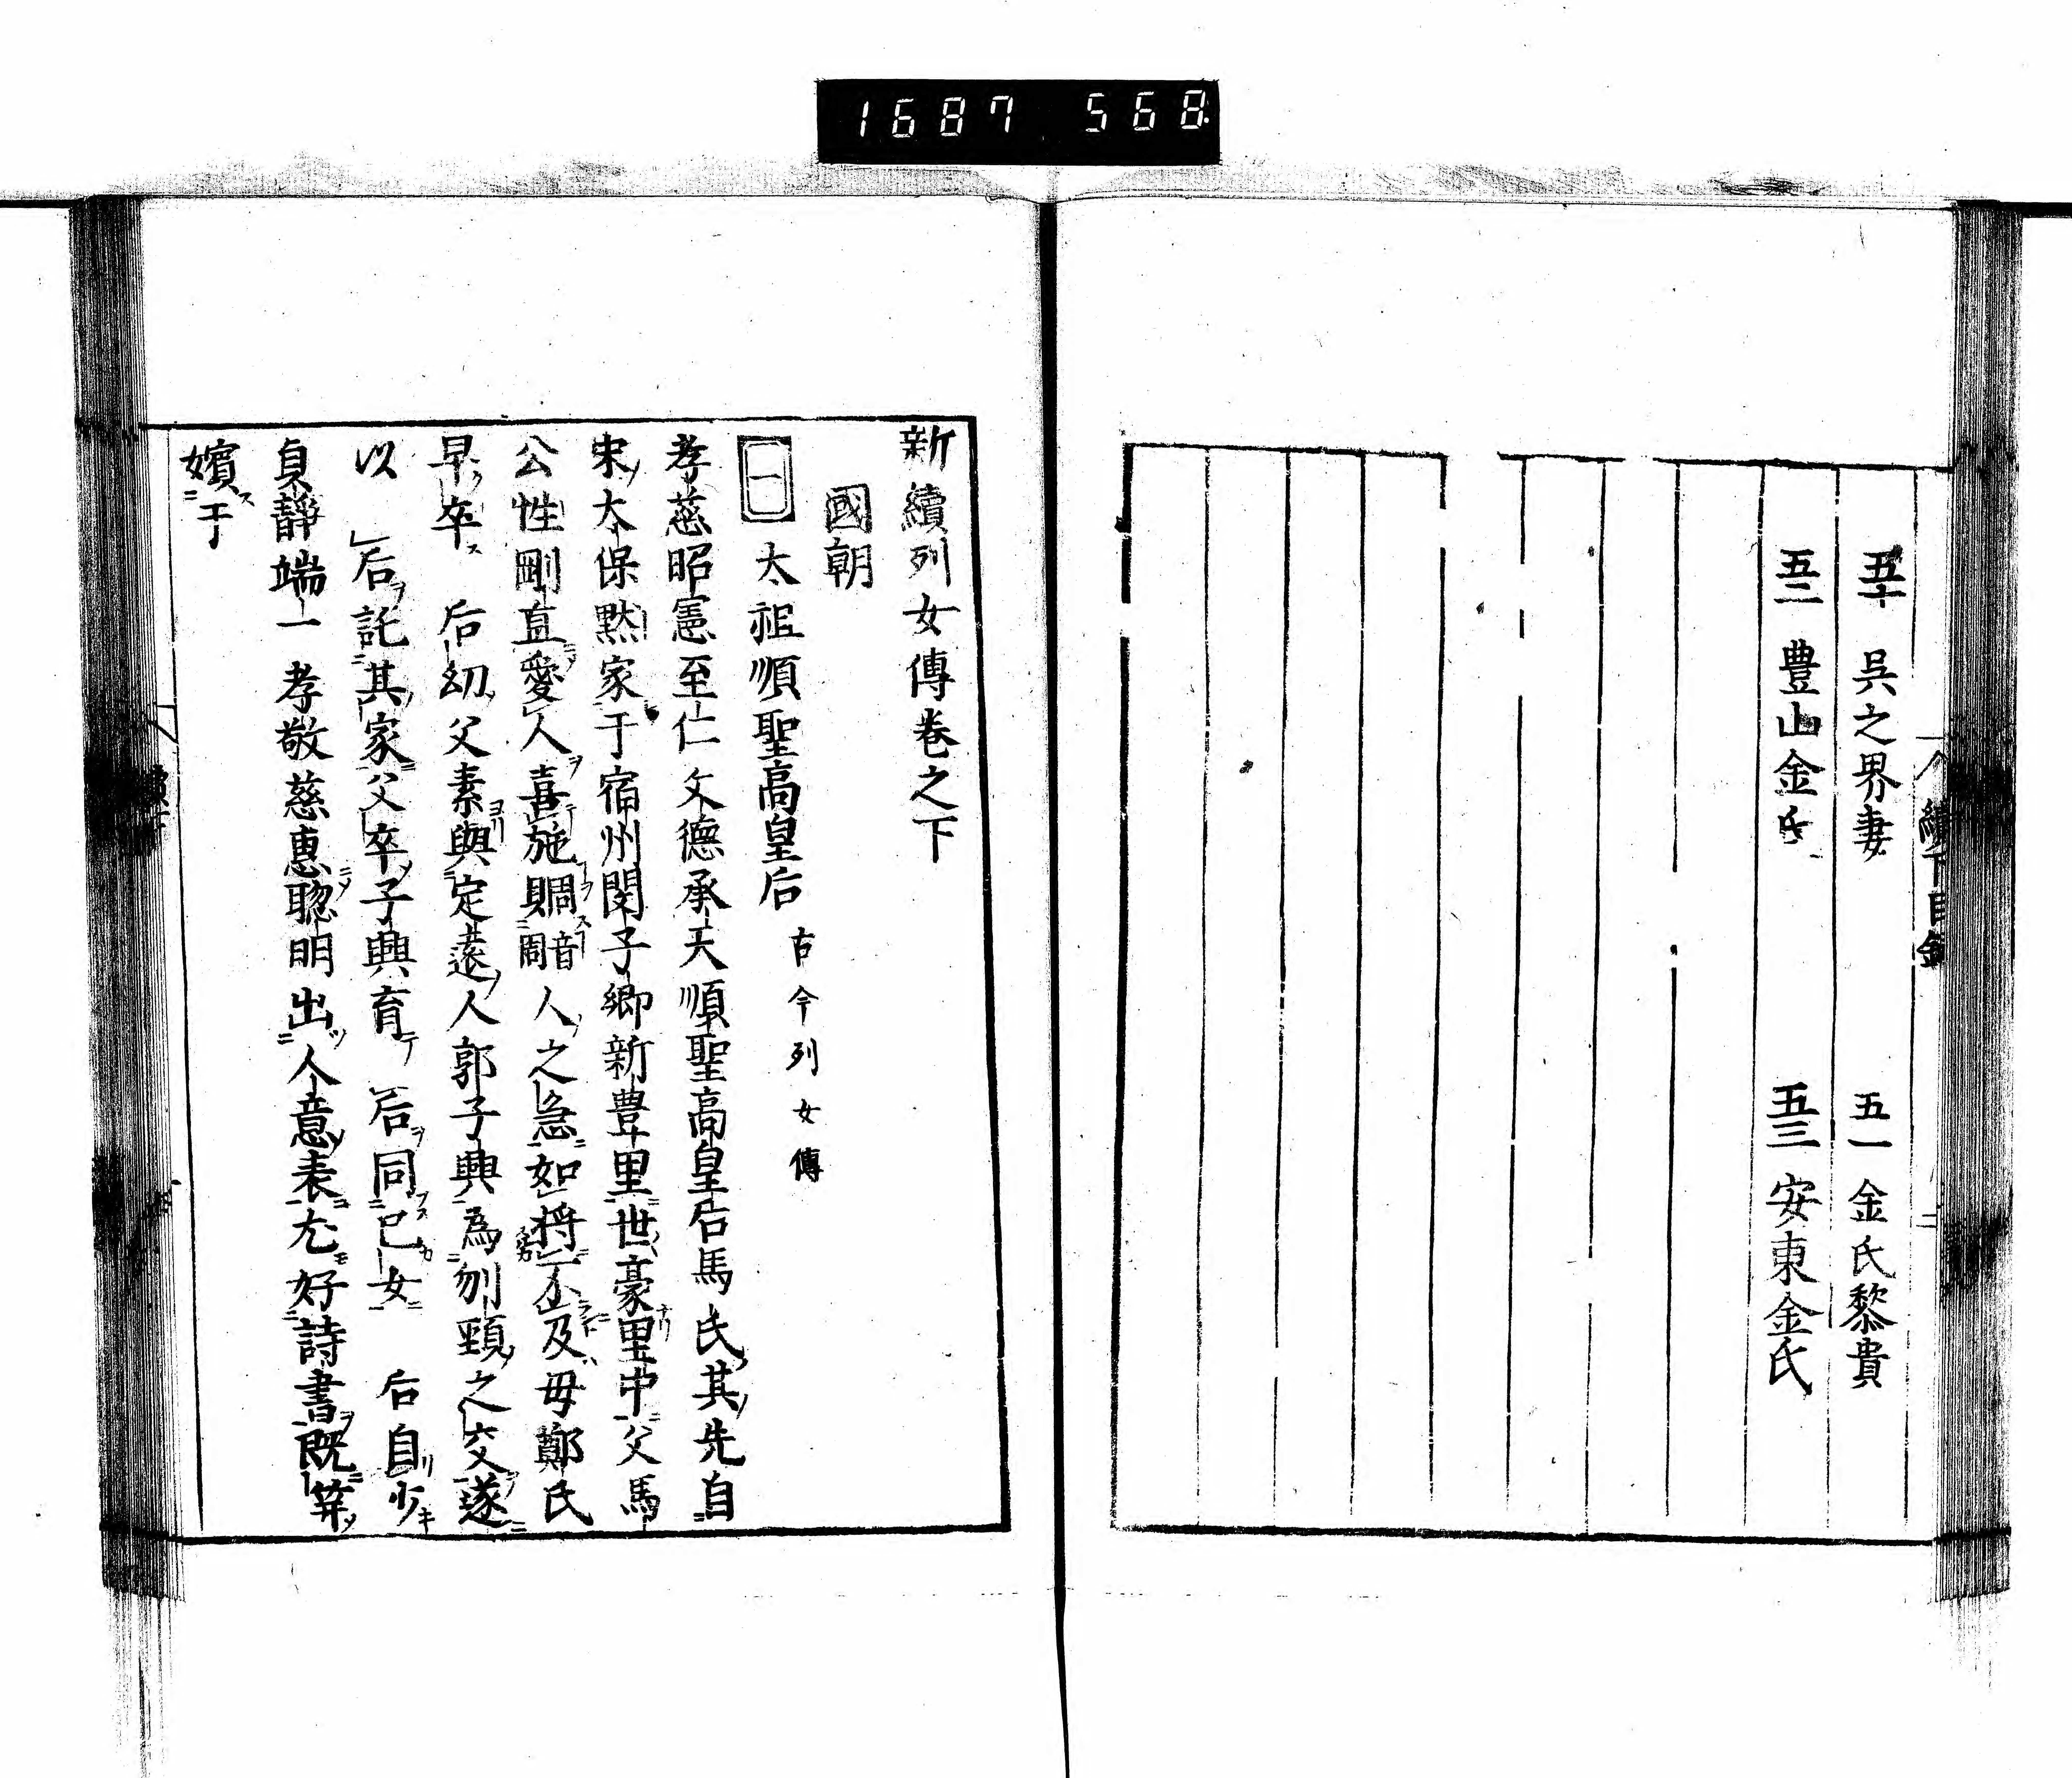 1687 568
五十 吳之界妻 五一 金氏黎貴
五二 豊山金氏 五三 安東金氏
續下目錄 二
新續列女傳卷之下
國朝
一 太祖順聖高皇后 古今列女傳
孝慈昭憲至仁文德承天順聖高皇后馬氏其先自
宋太保默家于宿州閔子鄉新豊里世豪里中父馬
公性剛直愛人喜施賙音周人之急如將不及母鄭氏
早卒 后幼父素與定遠人郭子興為刎頸之交遂
以 后託其家父卒子興育 后同己女 后自少
貞靜端一孝敬慈惠聰明出人意表尤好詩書既笄
嬪于